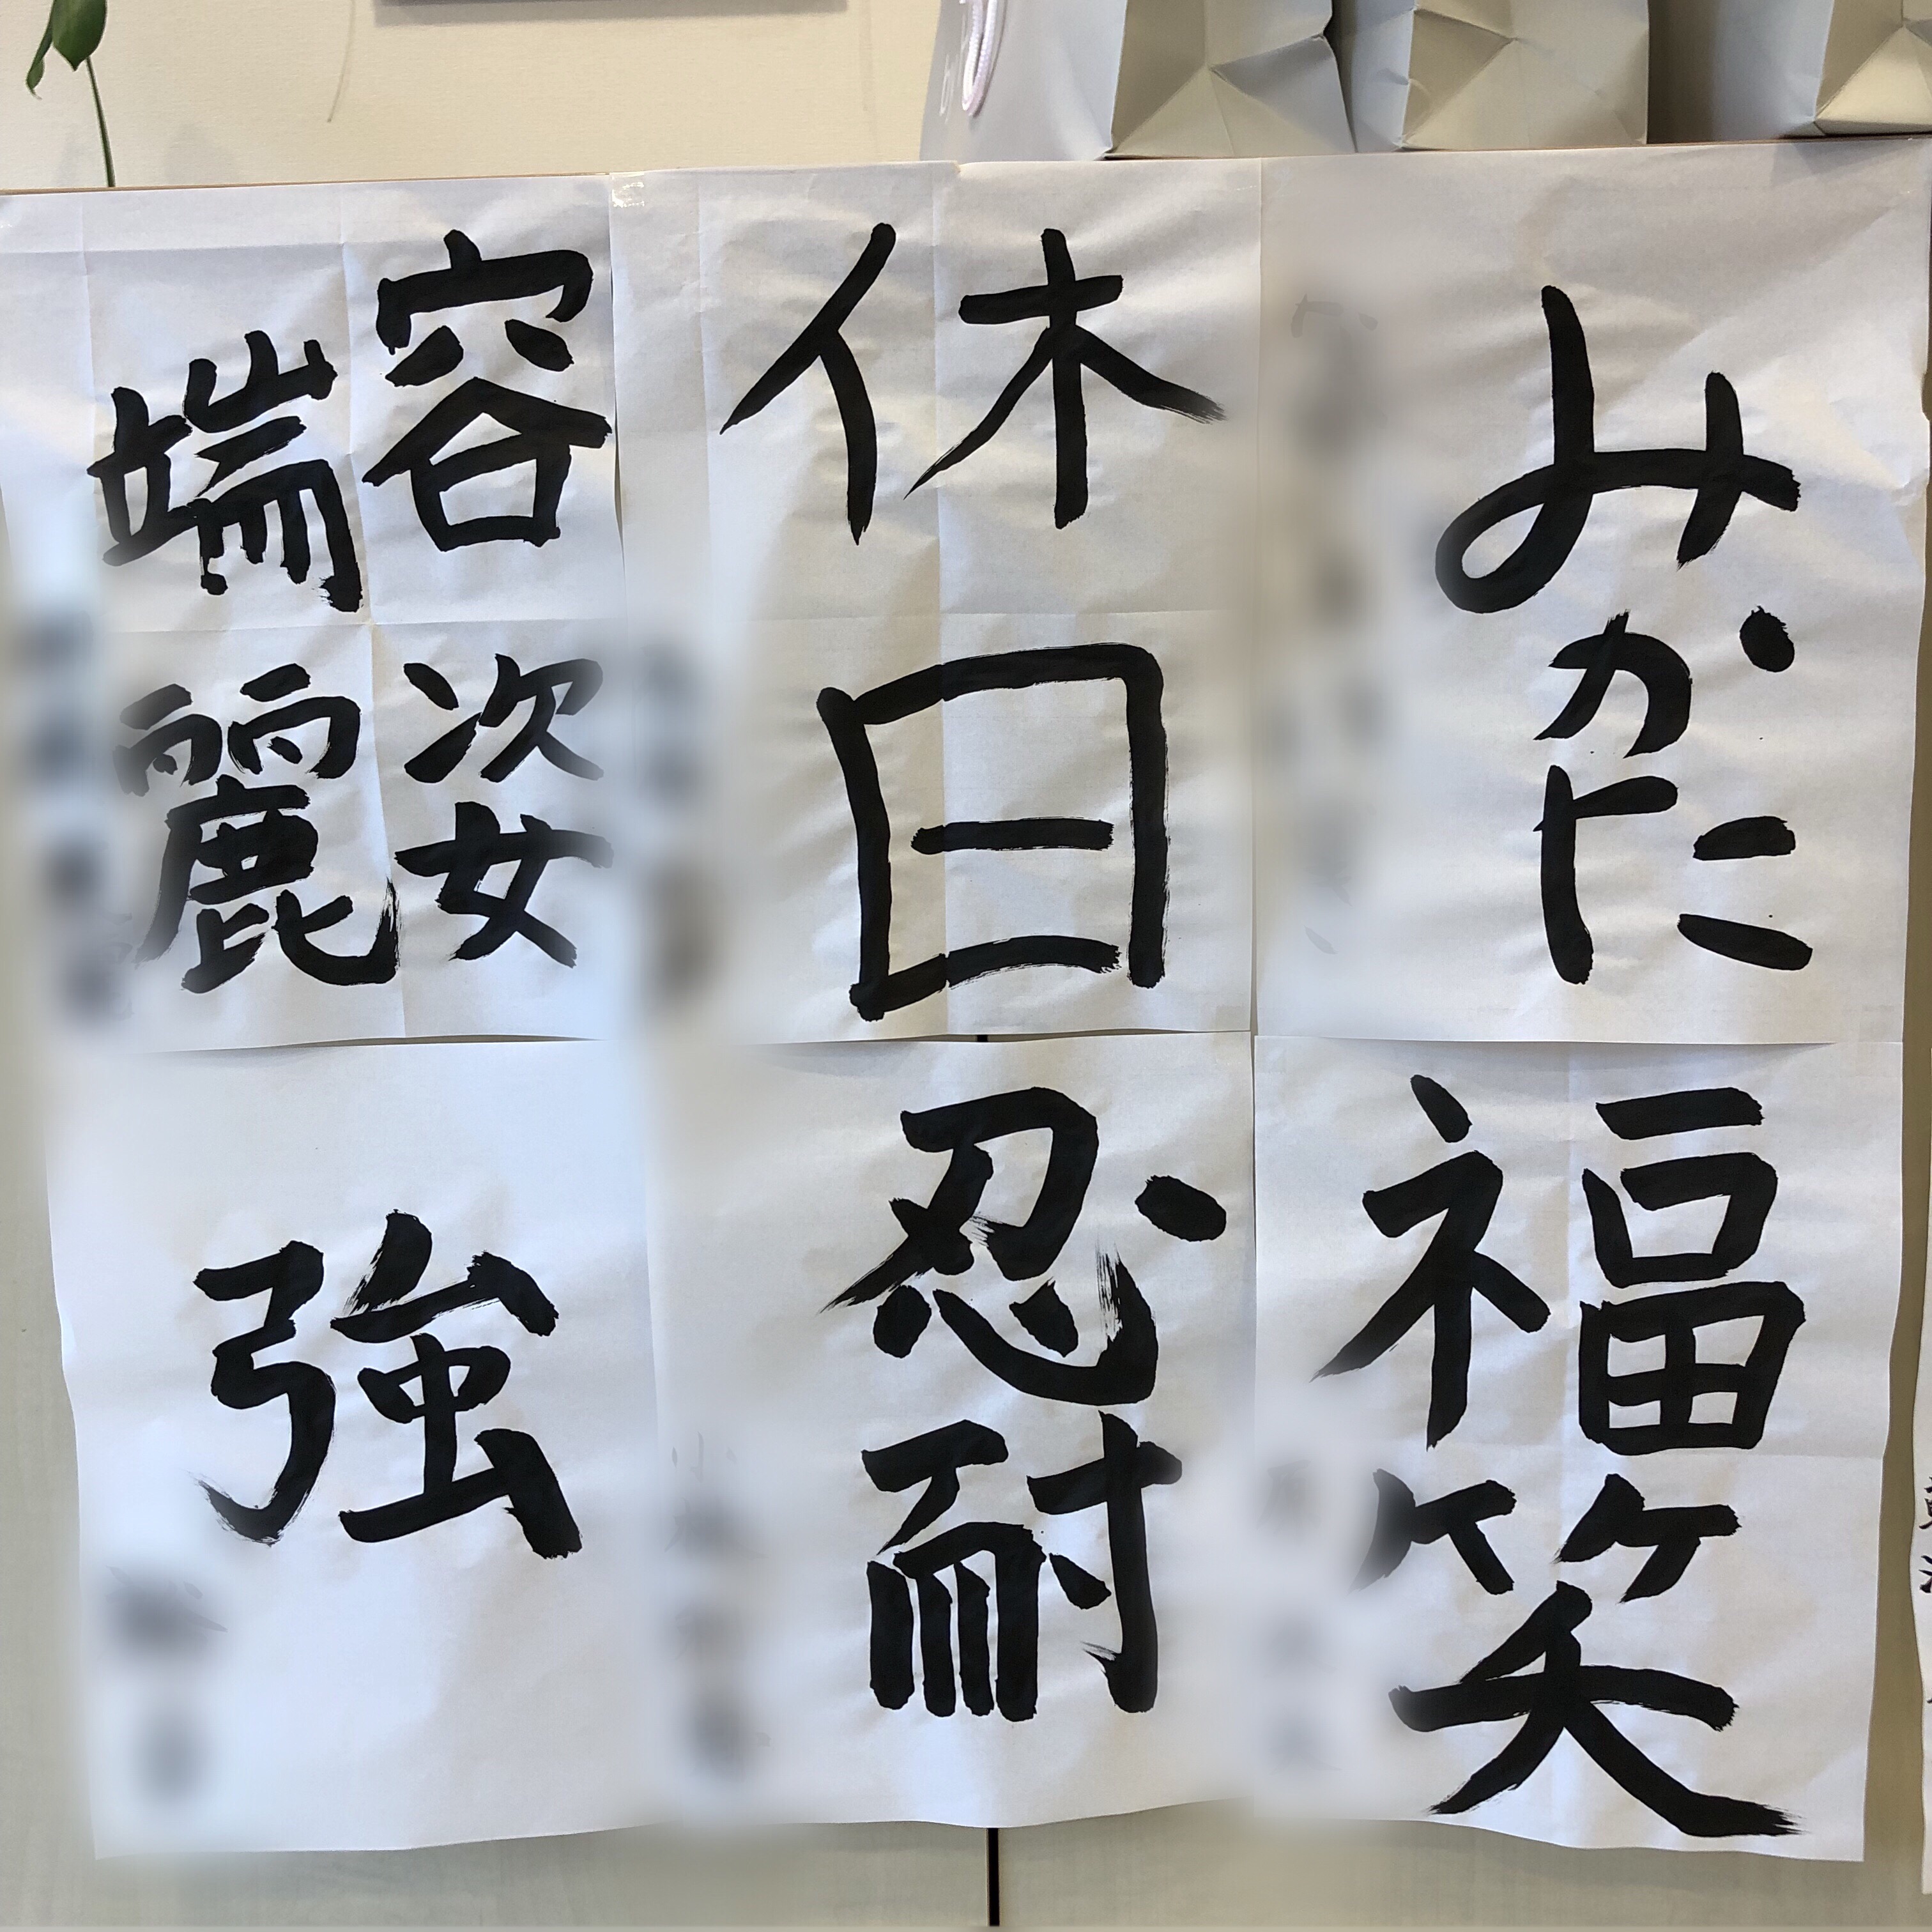 みかに
休日
容姿
端麗
福笑
忍耐
強